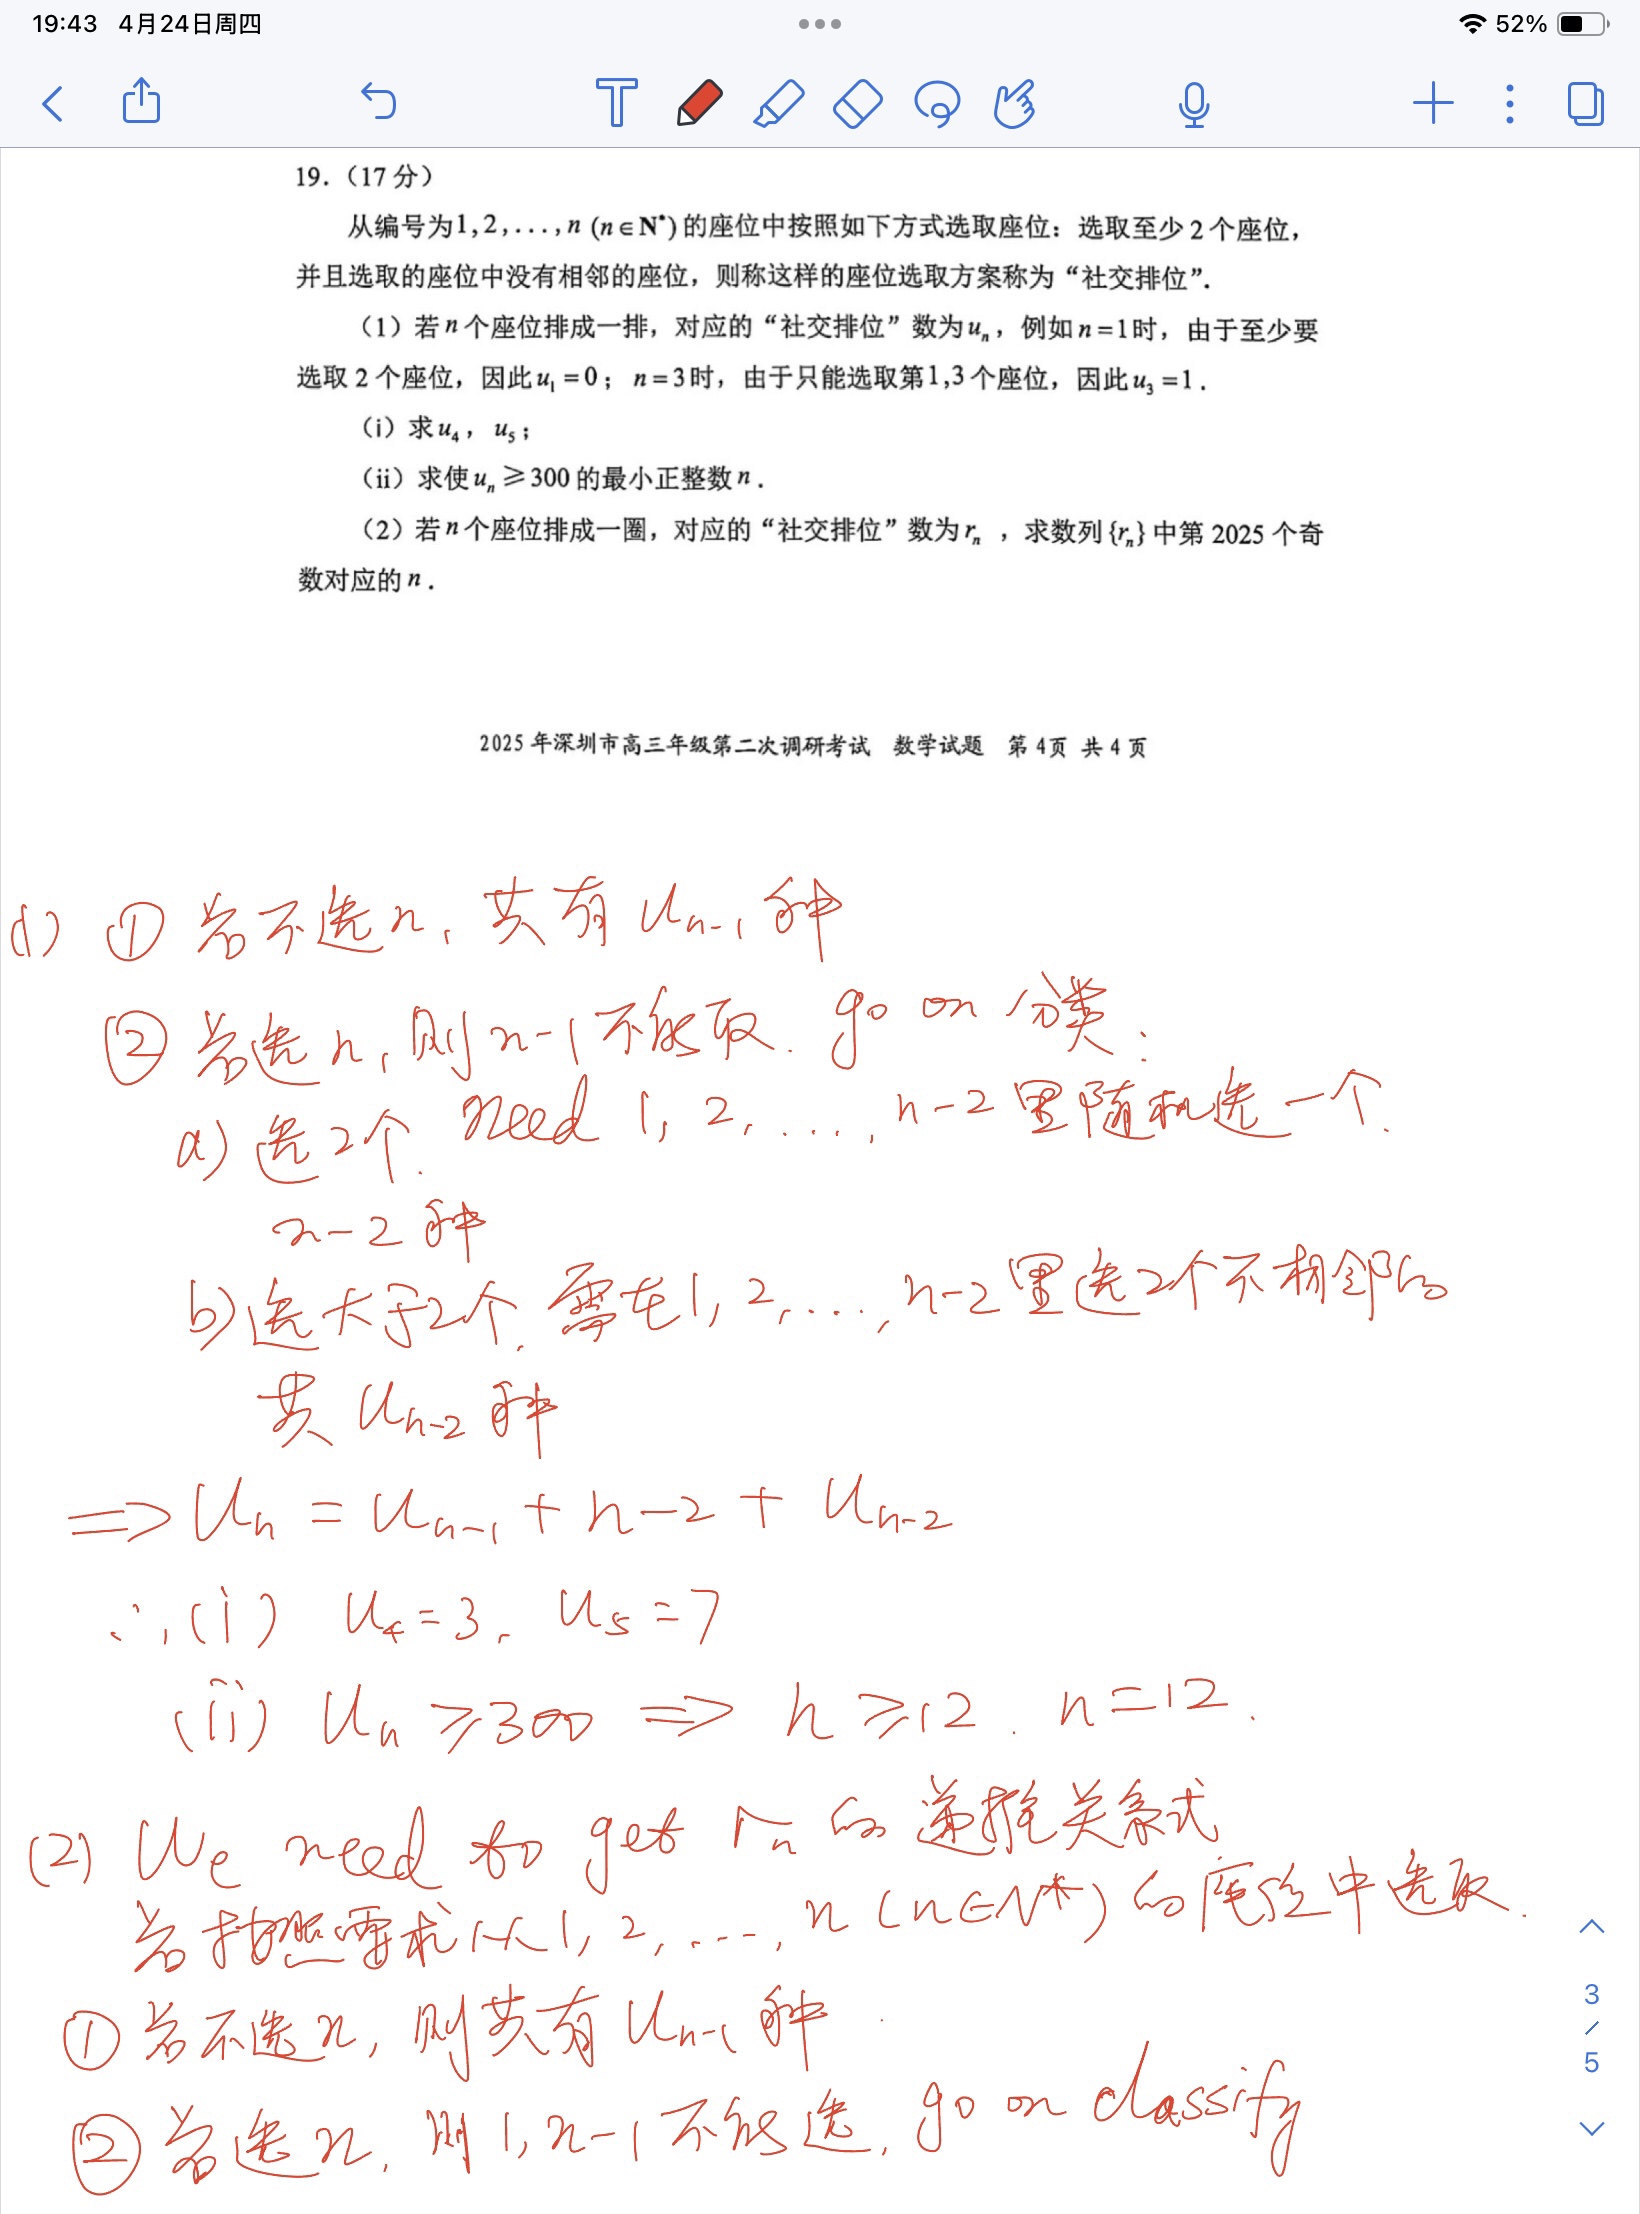 19:43 4月24日周四
52%
19.（17 分）
从编号为1,2,...,n (n∈N*) 的座位中按照如下方式选取座位：选取至少 2 个座位，
并且选取的座位中没有相邻的座位，则称这样的座位选取方案称为“社交排位”.
（1）若 n 个座位排成一排，对应的“社交排位”数为 uₙ，例如 n=1时，由于至少要
选取 2 个座位，因此 u₁=0；n=3时，由于只能选取第1,3个座位，因此 u₃=1.
（i）求 u₄，u₅；
（ii）求使 uₙ≥300 的最小正整数 n.
（2）若 n 个座位排成一圈，对应的“社交排位”数为 rₙ，求数列{rₙ}中第 2025 个奇
数对应的 n.
2025 年深圳市高三年级第二次调研考试 数学试题 第 4页 共 4 页
(1) ① 若不选n, 共有 Uₙ₋₁ 种
② 若选n, 则n-1不能取. go on 分类:
a) 选2个. need 1, 2, ...., n-2 里随机选一个.
n-2 种
b) 选大于2个, 需在1, 2, ...., n-2里选2个不相邻的
共 Uₙ₋₂ 种
⇒ Uₙ = Uₙ₋₁ + n-2 + Uₙ₋₂
∴ (i) U₄=3, U₅=7
(ii) Uₙ ≥300 ⇒ n≥12. n=12.
(2) We need to get rₙ 的递推关系式
若按照要求从1, 2, ...., n (n∈N*) 的座位中选取.
① 若不选n, 则共有 Uₙ₋₁ 种
② 若选n, 则1, n-1不能选, go on classify
3
/
5